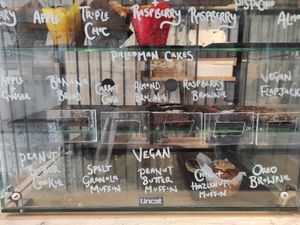 APPLE
TRIPLE
CHOC
RASPBERRY
PISTACHIO
ALMOND
PALEOMON CAKES
APPLE
GINGER
BANANA
BREAD
CARROT
CAKE
ALMOND
RASPBERRY
BROWNIE
VEGAN
FLAPJACK
PEANUT
BUTTER
COOKIE
SPELT
GRANOLA
MUFFIN
VEGAN
PEANUT
BUTTER
MUFFIN
CHOC +
HAZELNUT
MUFFIN
OREO
BROWNIE
Lincat